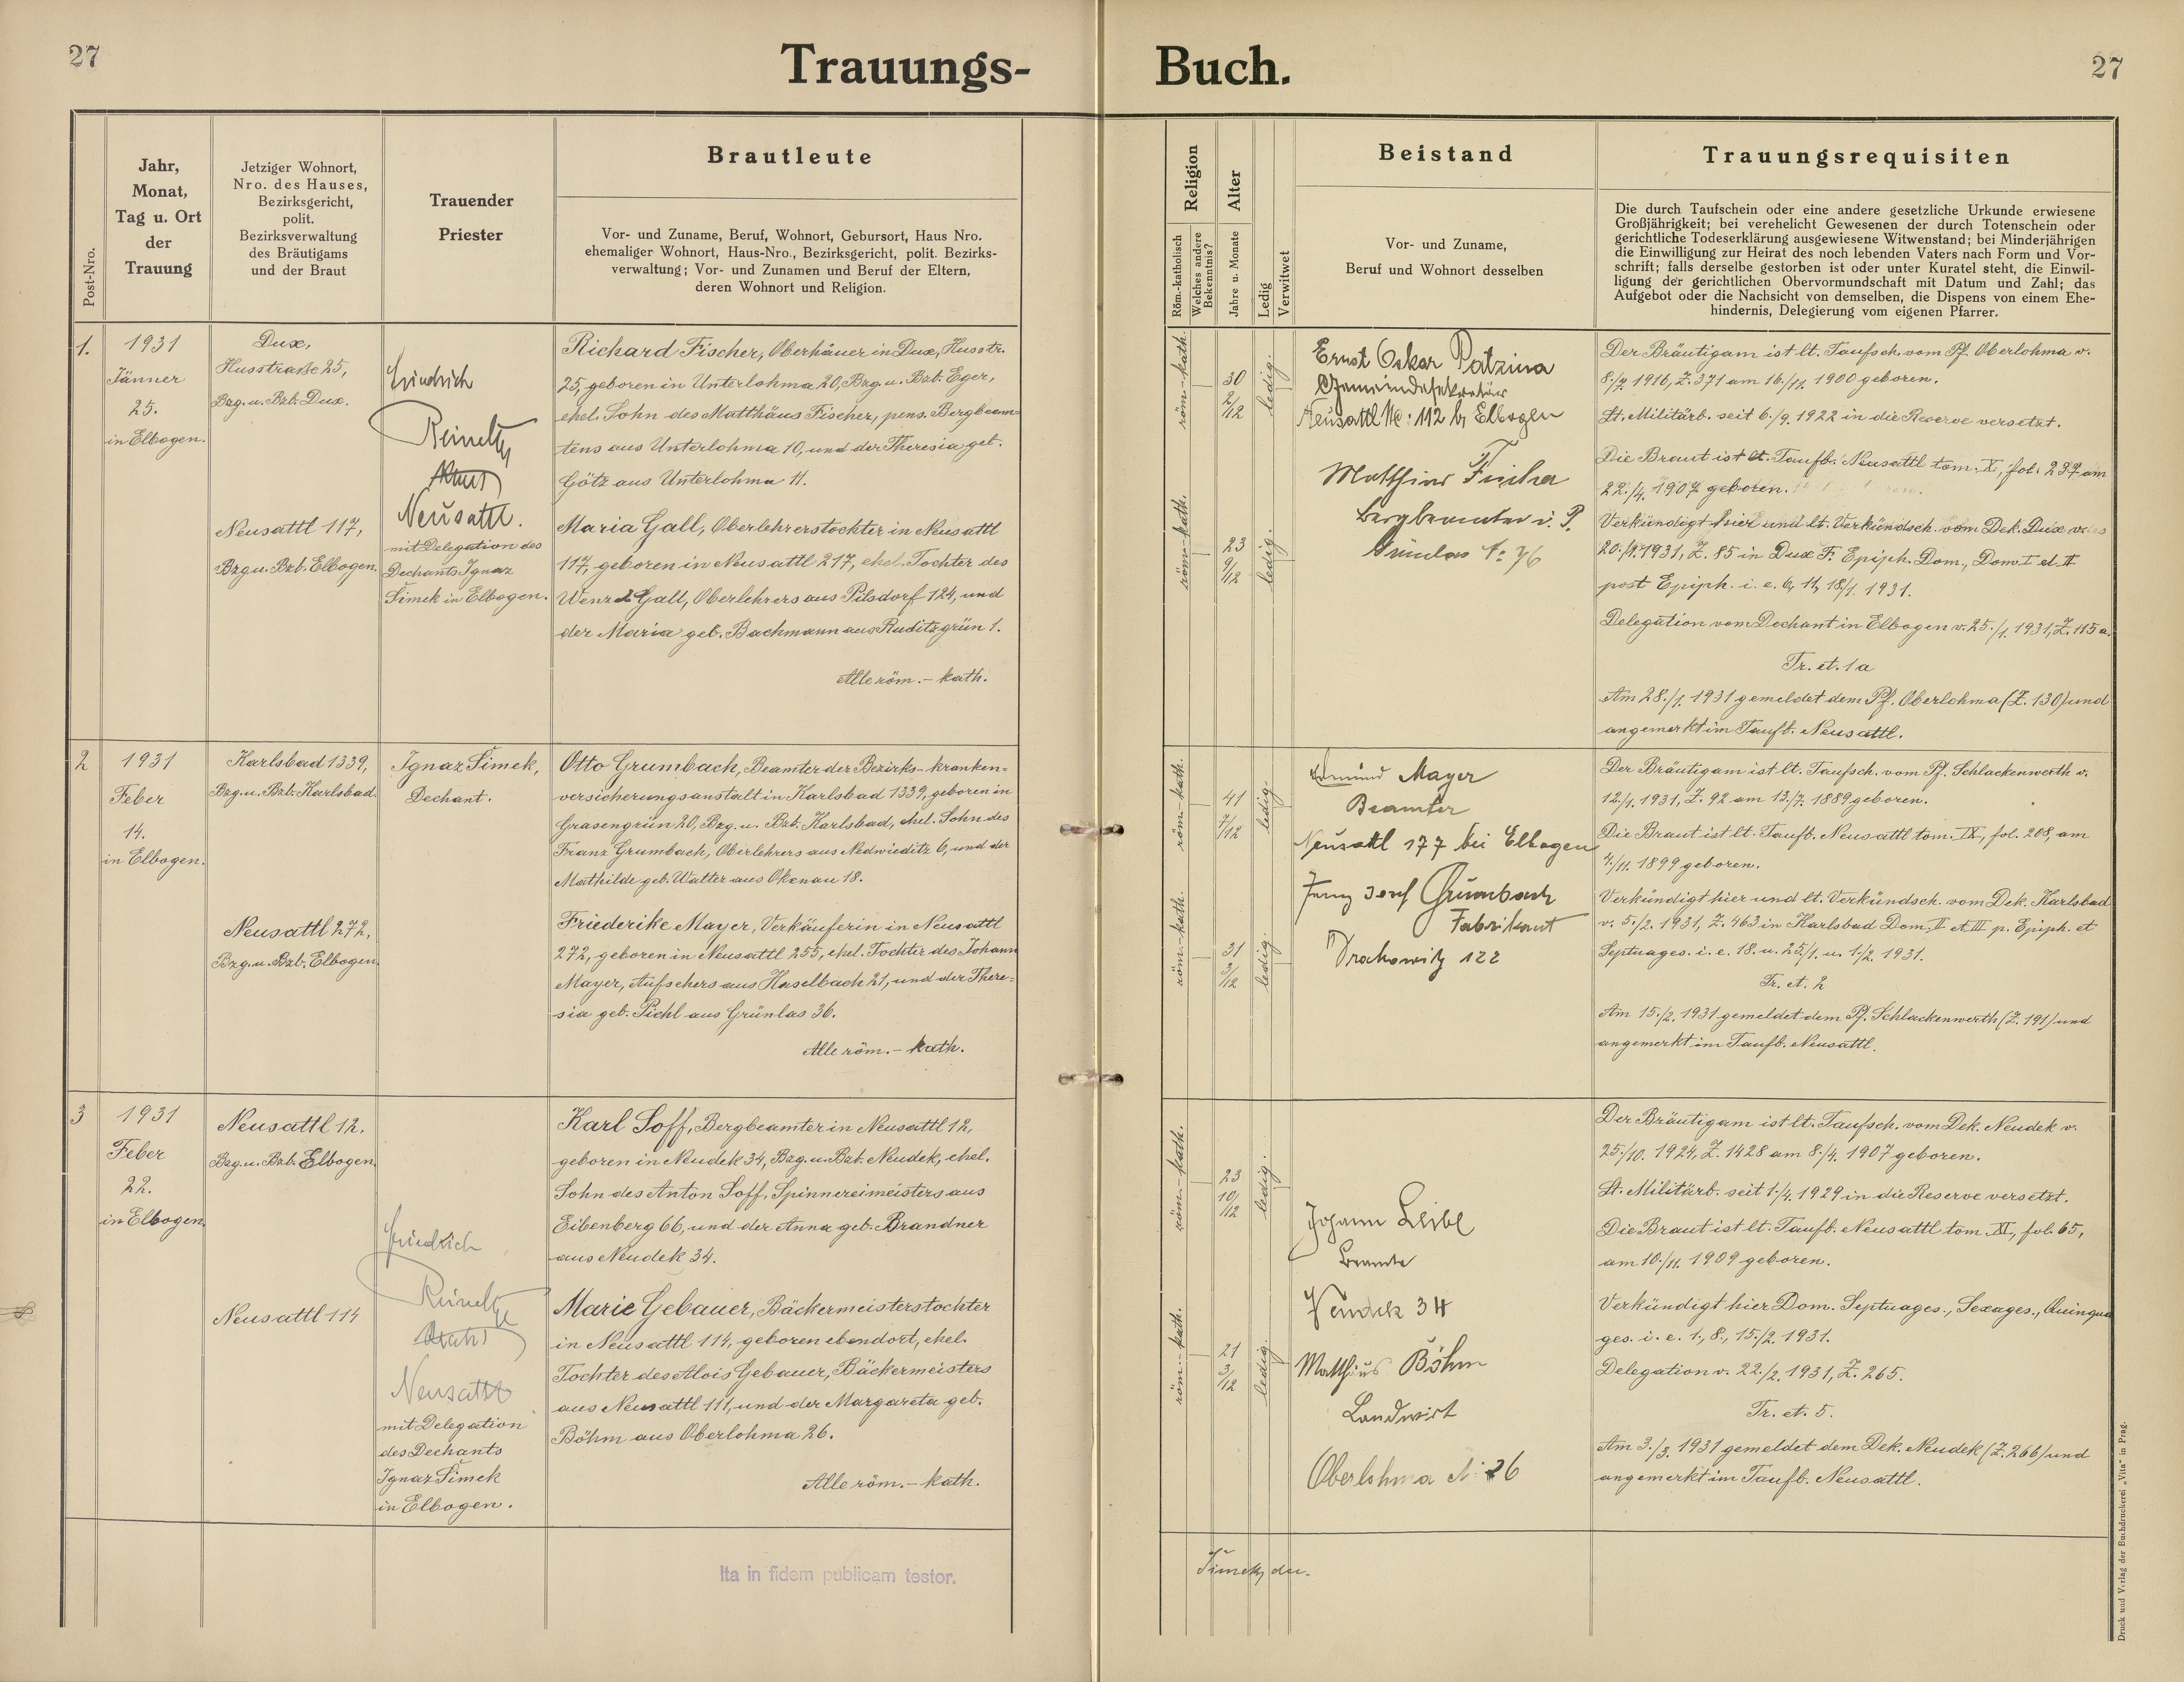 27
Trauungs-
Buch.
27
Post-Nro.
Jahr,
Monat,
Tag u. Ort
der
Trauung
Jetziger Wohnort,
Nro. des Hauses,
Bezirksgericht,
polit.
Bezirksverwaltung
des Bräutigams
und der Braut
Trauender
Priester
Brautleute
Vor- und Zuname, Beruf, Wohnort, Gebursort, Haus Nro.
ehemaliger Wohnort, Haus-Nro., Bezirksgericht, polit. Bezirks-
verwaltung; Vor- und Zunamen und Beruf der Eltern,
deren Wohnort und Religion.
Religion
Röm.-katholisch
Welches andere
Bekenntnis?
Alter
Jahre u. Monate
Ledig
Verwitwet
Beistand
Vor- und Zuname,
Beruf und Wohnort desselben
Trauungsrequisiten
Die durch Taufschein oder eine andere gesetzliche Urkunde erwiesene
Großjährigkeit; bei verehelicht Gewesenen der durch Totenschein oder
gerichtliche Todeserklärung ausgewiesene Witwenstand; bei Minderjährigen
die Einwilligung zur Heirat des noch lebenden Vaters nach Form und Vor-
schrift; falls derselbe gestorben ist oder unter Kuratel steht, die Einwil-
ligung der gerichtlichen Obervormundschaft mit Datum und Zahl; das
Aufgebot oder die Nachsicht von demselben, die Dispens von einem Ehe-
hindernis, Delegierung vom eigenen Pfarrer.
1.
1931
Jänner
25.
in Elbogen.
Dux,
Husstraße 25,
Bzg. u. Bzb. Dux.
Neusattl 117,
Bzg u. Bzb. Elbogen.
Friedrich
Reinelt
Neusattl.
mit Delegation des
Dechants Ignaz
Šimek in Elbogen.
Richard Fischer, Oberhäuer in Dux, Husstr.
25, geboren in Unterlohma 20, Bzg u. Bzb. Eger,
ehel. Sohn des Matthäus Fischer, pens. Bergbeam-
tens aus Unterlohma 10, und der Theresia geb.
Götz aus Unterlohma 11.
Maria Gall, Oberlehrerstochter in Neusattl
117, geboren in Neusattl 217, ehel. Tochter des
Wenzel Gall, Oberlehrers aus Pilsdorf 124, und
der Maria geb. Bachmann aus Ruditzgrün 1.
Alle röm.-kath.
röm.-kath.
30
2/12
ledig.
röm-kath.
23
9/12
ledig.
Ernst Oskar Patzina
Gemeindesekretär
Neusattl No: 112 b, Elbogen
Matthias Fischer
Bergbeamter i. P.
Grünlas N: 76
Der Bräutigam ist lt. Taufsch. vom Pf. Oberlohma v.
8./7. 1916, Z. 371 am 16./11. 1900 geboren.
Lt. Militärb. seit 6./9. 1922 in die Reserve versetzt.
Die Braut ist lt. Taufb. Neusattl tom. X, fol. 297 am
22./4. 1907 geboren.
Verkündigt hier und lt. Verkündsch. vom Dek. Dux v.
20./1. 1931, Z. 85 in Dux F. Epiph. Dom., Dom I et II
post Epiph. i. e. 6, 11, 18/1. 1931.
Delegation vom Dechant in Elbogen v. 25./1. 1931, Z. 115 a.
Tr. et. 1 a
Am 28./1. 1931 gemeldet dem Pf. Oberlohma (Z. 130) und
angemerkt im Taufb. Neusattl.
2
1931
Feber
14.
in Elbogen.
Karlsbad 1339,
Bzg. u. Bzb. Karlsbad
Neusattl 272,
Bzg. u. Bzb. Elbogen
Ignaz Šimek,
Dechant.
Otto Grumbach, Beamter der Bezirks-kranken-
versicherungsanstalt in Karlsbad 1339, geboren in
Grasengrün 20, Bzg. u. Bzb. Karlsbad, ehel. Sohn des
Franz Grumbach, Oberlehrers aus Nedwieditz 6, und der
Mathilde geb. Walter aus Okenau 18.
Friederike Mayer, Verkäuferin in Neusattl
272, geboren in Neusattl 255, ehel. Tochter des Johann
Mayer, Aufsehers aus Haselbach 21, und der There-
sia geb. Pichl aus Grünlas 36.
Alle röm.-kath.
röm.-kath.
41
7/12
ledig.
röm-kath.
31
3/12
ledig.
Edmund Mayer
Beamter
Neusattl 177 bei Elbogen
Franz Josef Grumbach
Fabrikant
122
Der Bräutigam ist lt. Taufsch. vom Pf. Schlackenwerth v.
12./1. 1931, Z. 92 am 13./7. 1889 geboren.
Die Braut ist lt. Taufb. Neusattl tom. IX, fol. 208, am
4./11. 1899 geboren.
Verkündigt hier und lt. Verkündsch. vom Dek. Karlsbad
v. 5./2. 1931, Z. 463 in Karlsbad Dom. II et III p. Epiph. et
Septuages. i. e. 18. u. 25/1. u. 1./2. 1931.
Tr. et. 2
Am 15./2. 1931 gemeldet dem Pf. Schlackenwerth (Z. 191) und
angemerkt im Taufb. Neusattl.
3
1931
Feber
22.
in Elbogen
Neusattl 12.
Bzg. u. Bzb. Elbogen
Neusattl 114
Friedrich
Reinelt
Neusattl
mit Delegation
des Dechants
Ignaz Šimek
in Elbogen.
Karl Soff, Bergbeamter in Neusattl 12,
geboren in Neudek 34, Bzg. u. Bzb. Neudek, ehel.
Sohn des Anton Soff, Spinnereimeisters aus
Eibenberg 66, und der Anna geb. Brandner
aus Neudek 34.
Marie Gebauer, Bäckermeisterstochter
in Neusattl 114, geboren ebendort, ehel.
Tochter des Alois Gebauer, Bäckermeisters
aus Neusattl 111, und der Margareta geb.
Böhm aus Oberlohma 26.
Alle röm.-kath.
röm-kath.
23
10/12
ledig.
röm.-kath.
21
3/12
ledig.
Johann Leibl
Beamte
Neudek 34
Matthäus Böhm
Landwirt
Oberlohma N: 26
Der Bräutigam ist lt. Taufsch. vom Dek. Neudek v.
25./10. 1924, Z. 1428 am 8./4. 1907 geboren.
Lt. Militärb. seit 1./4. 1929 in die Reserve versetzt.
Die Braut ist lt. Taufb. Neusattl tom. XI, fol. 65,
am 10./11. 1909 geboren.
Verkündigt hier Dom. Septuages., Sexages., Quinqua
ges. i. e. 1., 8., 15./2. 1931.
Delegation v. 22./2. 1931, Z. 265.
Tr. et. 5.
Am 3./3. 1931 gemeldet dem Dek. Neudek (Z. 266) und
angemerkt im Taufb. Neusattl.
Ita in fidem publicam testor.
Šimek, der.
Druck und Verlag der Buchdruckerei „Vita" in Prag.